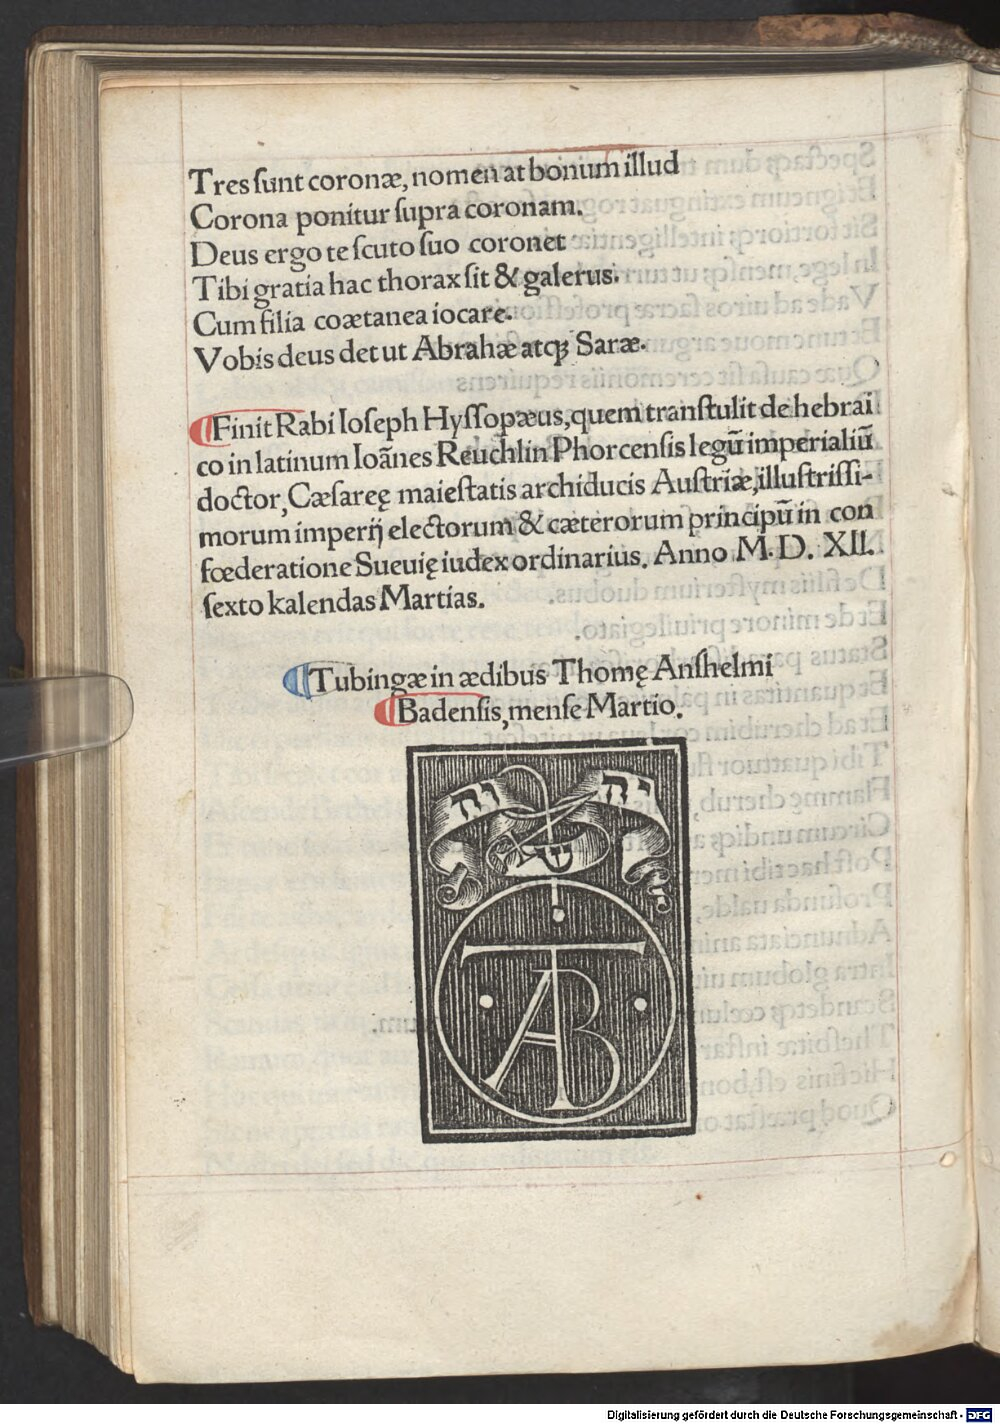 Tres sunt coronæ, nomen at bonum illud
Corona ponitur supra coronam.
Deus ergo te scuto suo coronet
Tibi gratia hac thorax sit & galerus.
Cum filia coætanea iocare.
Vobis deus det ut Abrahæ atqꝫ Saræ.
¶Finit Rabi Ioseph Hyssopæus, quem transtulit de hebrai
co in latinum Ioãnes Reuchlin Phorcensis legũ imperialiũ
doctor, Cæsaręę maiestatis archiducis Austriæ, illustrissi-
morum imperij electorum & cæterorum principũ in con
fœderatione Sueuię iudex ordinarius. Anno M. D. XII.
sexto kalendas Martias.
¶Tubingæ in ædibus Thomę Anshelmi
¶Badensis, mense Martio.
יה ש וה
TAB
Digitalisierung gefördert durch die Deutsche Forschungsgemeinschaft - DFG